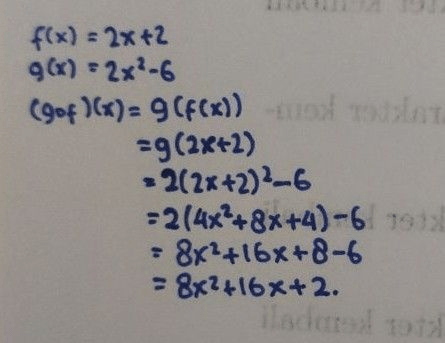 f(x) = 2x+2
g(x) = 2x²-6
(gof)(x) = g(f(x))
= g(2x+2)
= 2(2x+2)²-6
= 2(4x²+8x+4)-6
= 8x²+16x+8-6
= 8x²+16x+2.